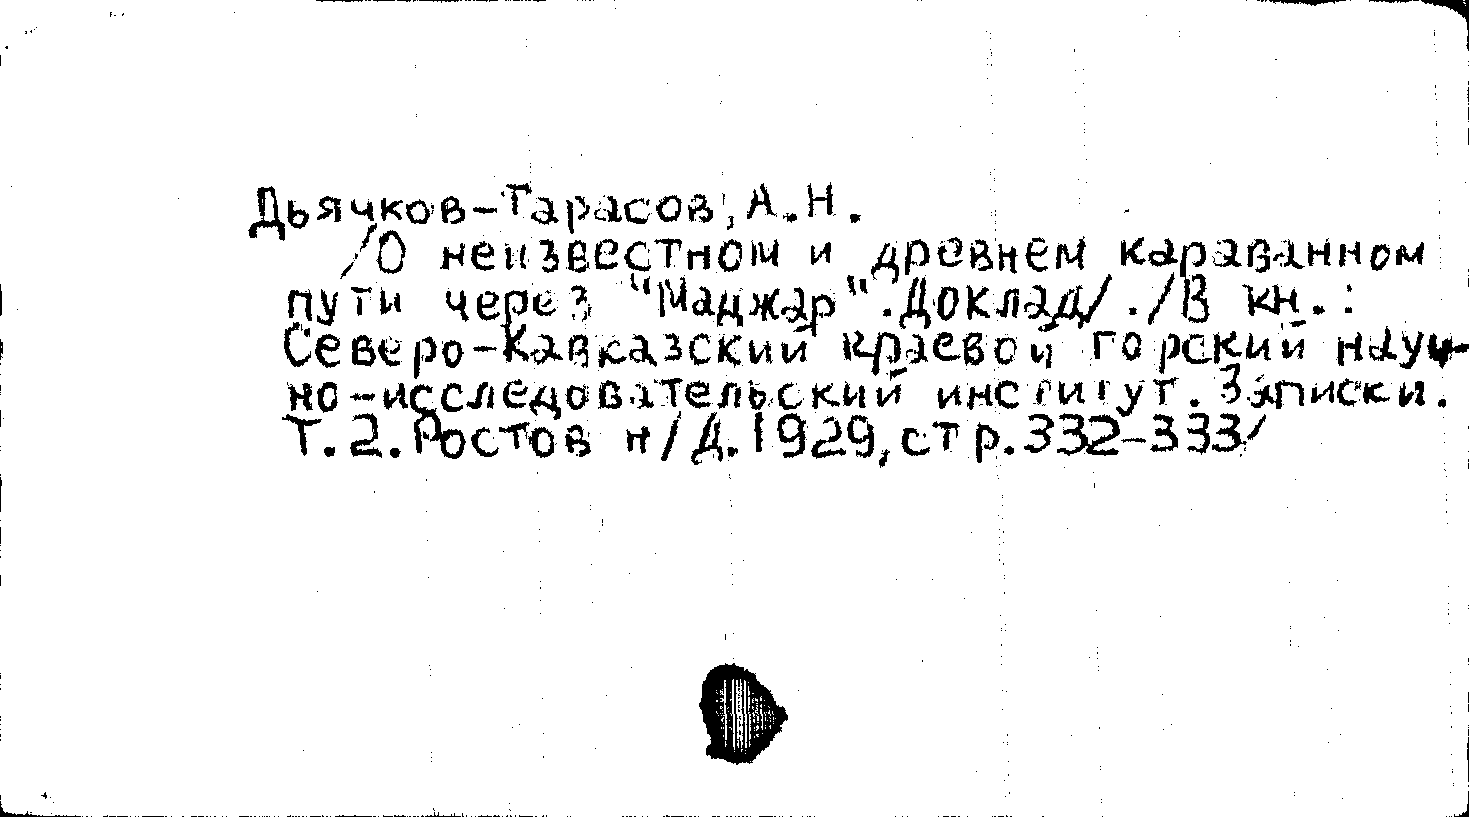 Дьячков-Тарасов,А.Н.
/О неизвестном и древнем караванном
пути через "Маджар".Доклад/./В кн.:
Северо-Кавказский краевой горский науч-
но-исследовательский институт.Записки.
Т.2.Ростов н/Д.1929,стр.332-333/